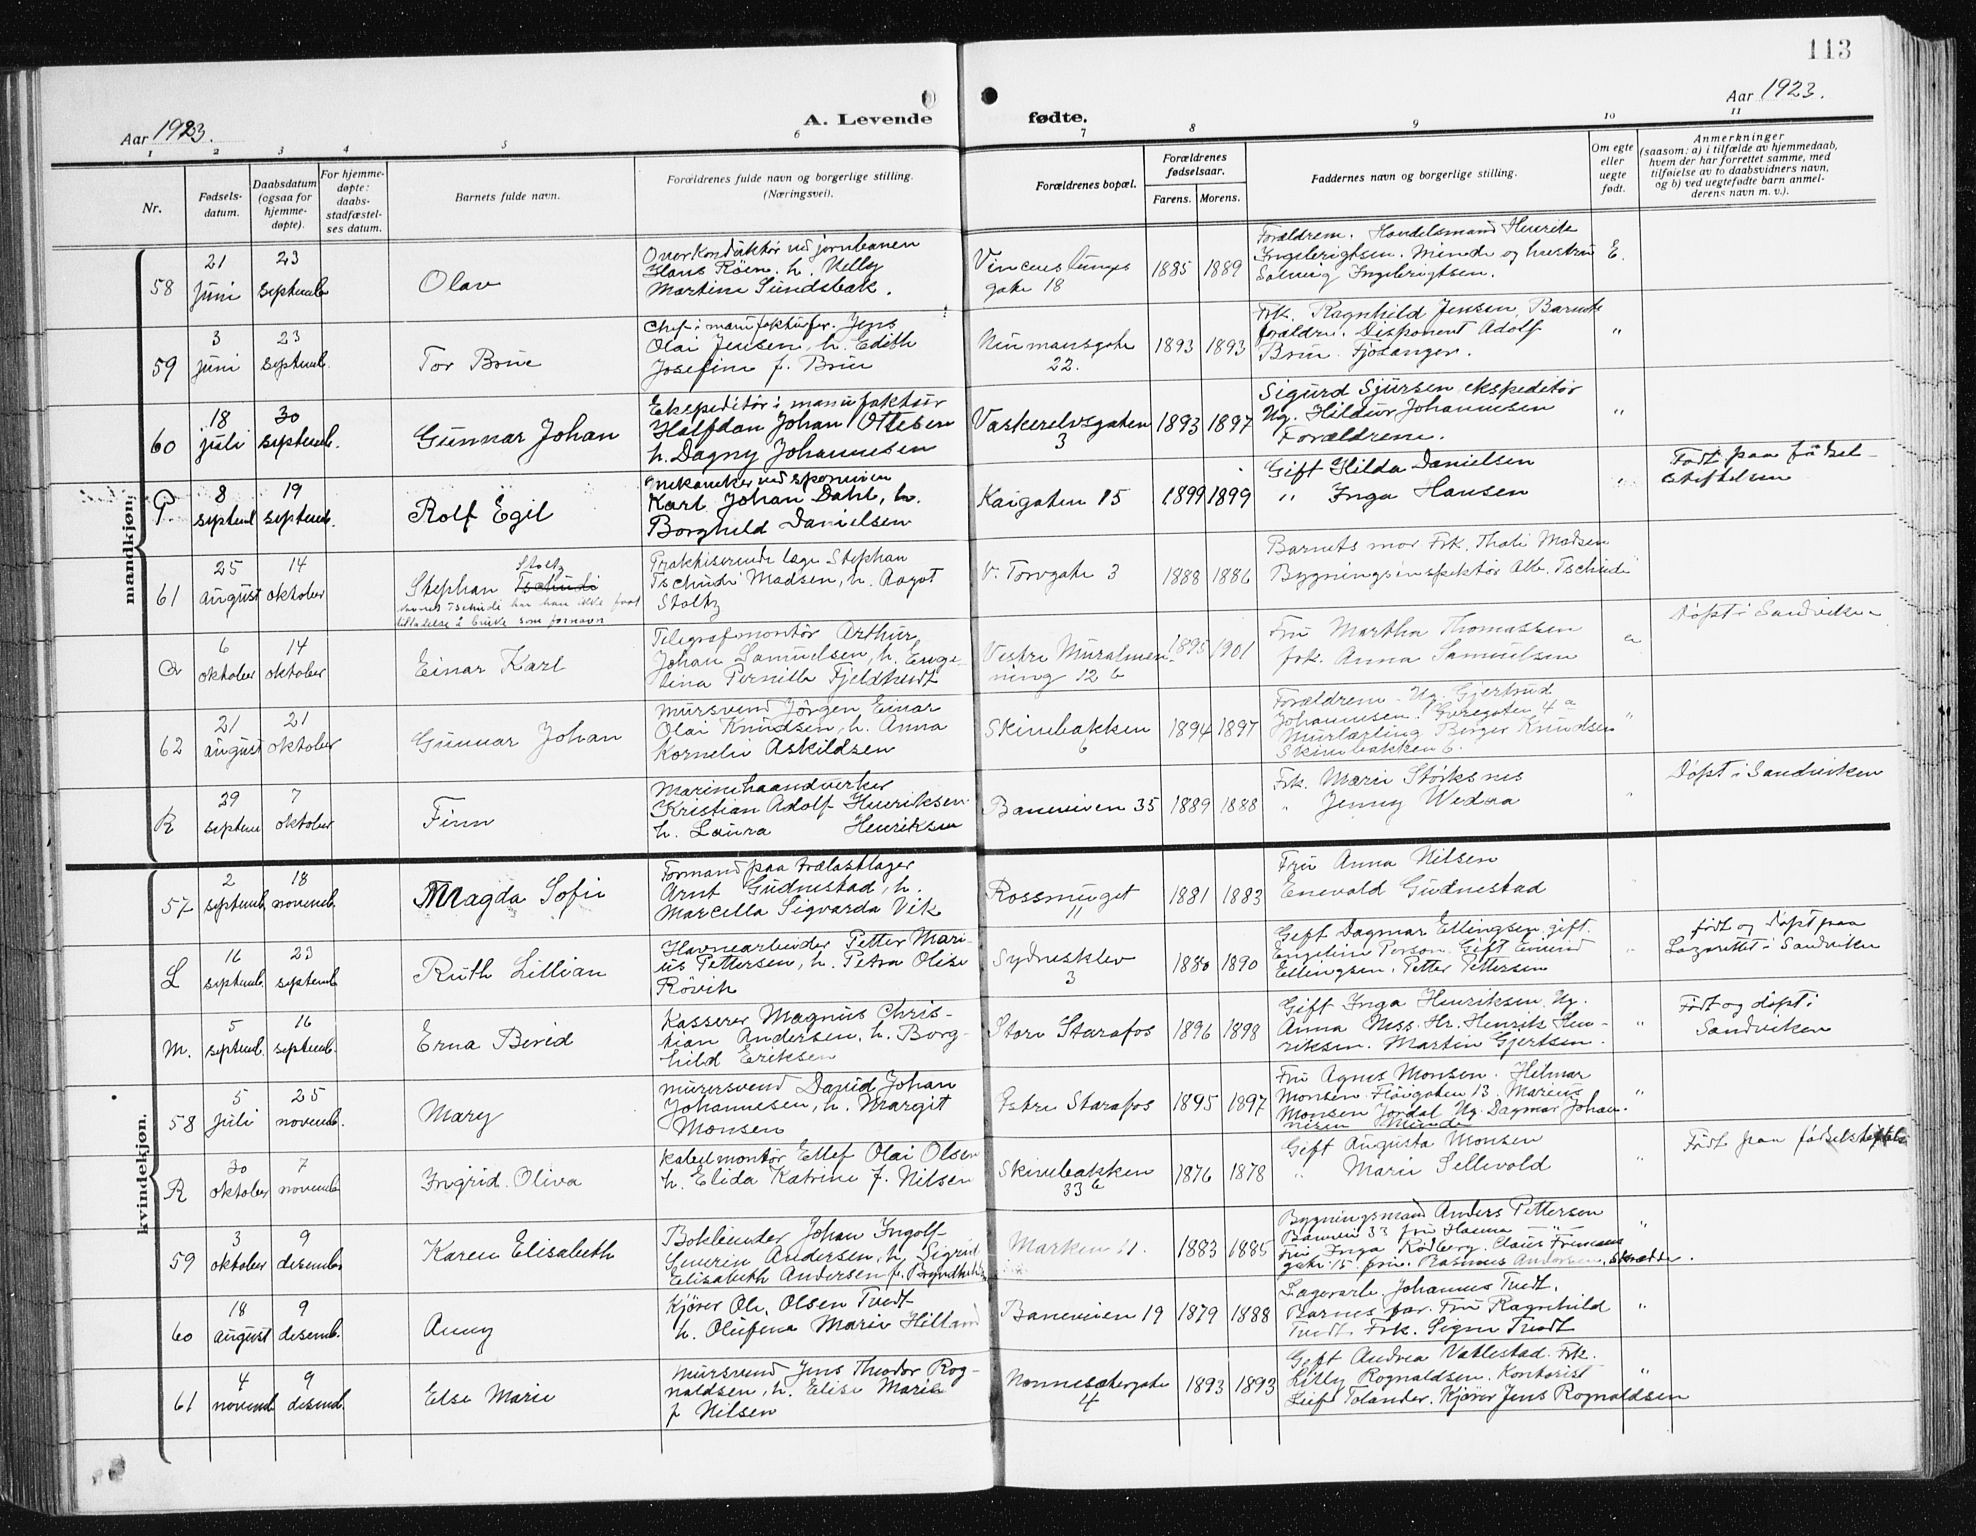 113
Aar 1923.
A. Levende fødte.
Aar 1923.
1 2 3 4 5 6 7 8 9 10 11
Nr.
Fødselsdatum.
Daabsdatum (ogsaa for hjemmedøpte).
For hjemmedøpte: daabsstadfæstelses datum.
Barnets fulde navn.
Forældrenes fulde navn og borgerlige stilling. (Næringsvei).
Forældrenes bopæl.
Forældrenes fødselsaar.
Farens. Morens.
Faddernes navn og borgerlige stilling.
Om egte eller uegte født.
Anmerkninger
(saasom: a) i tilfælde av hjemmedaab,
hvem der har forrettet samme, med
tilføielse av to daabsvidners navn,
og b) ved uegtefødte barn anmelderens navn m. v.).
mandkjøn.
58
21 juni
23 septemb.
Olav
Overkonduktør ved jernbanen
Hans Röen. h. Nelly
Martine Sundsbak.
Vincens Lunges
gate 18
1885 1889
Forældrene. Handelsmand Henrik
Ingebrigtsen. Minde og hustru
Solveig Ingebrigtsen.
E.
59
3 juni
23 septemb.
Tor Brue
Chef i manufakturfor. Jens
Olai Jensen, h. Edith
Josefine f. Brun
Neumansgate
22.
1893 1893
Frk. Ragnhild Jensen, Barnets
forældre. Disponent Adolf
Brun Fjøsanger.
"
60
18 juli
30 septemb.
Gunnar Johan
Ekspeditör i manufaktur
Halfdan Johan Ottesen
h. Dagny Johannesen
Vaskerelvsgaten
3
1893 1897
Sigurd Sjursen, ekspeditör
Ug. Hildur Johannesen
Forældrene.
"
P.
8 septemb
19 septemb.
Rolf Egil
mekaniker ved sporveien
Karl Johan Dahl, h.
Borghild Danielsen
Kaigaten 15
1899 1899
Gift Hilda Danielsen
" Inga Hansen
"
Født paa fødsel-
stiftelsen
61
25 august
14 oktober
Stoltz
Stephan Tschudi
navnet Tschudi har han ikke faat
tilladelse å bruke som fornavn
Praktiserende læge Stephan
Tschudi Madsen, h. Aagot
Stoltz
V. Torvgate 3
1888 1886
Barnets mor Frk. Thali Madsen
Bygningsinspektör Alb. Tschudi
"
a
6 oktober
14 oktober
Einar Karl
Telegrafmontör Arthur
Johan Samuelsen, h. Enge-
lina Pernille Fjeldtvedt
Vestre Muralmen-
ning 12 b
1895 1901
Fru Martha Thomassen
frk. Anna Samuelsen
"
Döpt i Sandviken
62
21 august
21 oktober
Gunnar Johan
Mursvend Jörgen Einar
Olai Knudsen, h. Anna
Kornelie Askildsen
Skivebakken
6
1894 1897
Forældrene. Ug. Gjertrud
Johannesen. 4 a
Murlærling Birger Knudsen
Skivebakken 6.
"
R
29 septem
7 oktober
Finn
Marinehaandverker
Kristian Adolf Henriksen
h. Laura Henriksen
Baneveien 35
1889 1888
Frk. Marie Störksnes
" Jenny Wedaa
"
Döpt i Sandviken
kvindekjøn.
57
2 septemb.
18 novemb.
Magda Sofie
Formand paa trælastlager
Arnt Gudnestad, h.
Marcella Sigvarda Vik
Rossmuget
11
1881 1883
Fru Anna Nilsen
Enevold Gudnestad
L
16 septemb.
23 septemb
Ruth Lillian
Havnearbeider Petter Mari-
us Pettersen, h. Petra Olise
Rövik
Sydnesklev
3
1880 1890
Gift Dagmar Ellingsen, gift.
Engeline Person. Gift Emund
Ellingsen. Petter Pettersen
"
født og döpt paa
Lazarettet i Sandviken
M.
5 septemb.
16 septemb.
Erna Berid
Kasserer Magnus Chris-
tian Andersen, h. Borg-
hild Eriksen
Store Starafos
1896 1898
Gift Inga Henriksen, Ug.
Anna Ness. Hr. Henrik Hen-
riksen. Martin Gjertsen.
"
Født og döpt i
Sandviken
58
5 juli
25 novemb.
Mary
Murersvend David Johan
Johannesen, h. Margit
Monsen
Østre Starafos
1895 1897
Fru Agnes Monsen. Helmar
Monsen Fløigaten 13. Marius
Monsen Jordal Ug. Dagmar Johan-
nesen Minde
"
R
30 oktober
7 novemb
Ingrid Oliva
Kabelmontör Ellef Olai Olsen
h. Elida Katrine f. Nilsen
Skivebakken
33 b
1876 1878
Gift Augusta Monsen
" Marie Sellevold
"
Født paa fødselstiftelsen
59
3 oktober
9 desemb.
Karen Elisabeth
Bokbinder Johan Ingolf
Severin Andersen, h. Sigrid
Elisabeth Andersen f.
Marken 11.
1883 1885
Bygningsmand Anders Pettersen
Baneveien 33 fru Hanna "
Fru Inga Rödberg. Claus
gate 15 fru. Rasmus Andersen. Skrædder.
"
60
18 august
9 desemb.
Anny
Kjører Ole Olsen Tvedt
h. Olufine Marie Hilland
Baneveien 19
1879 1888
Lagerarb. Johannes Tvedt.
Barnets far. Fru Ragnhild
Tvedt Frk. Signe Tvedt
"
61
4 novemb
9 desemb.
Else Marie
Mursvend Jens Theodor Rog-
naldsen, h. Elise Marie
f Nilsen
Nonnesætergate
4
1893 1893
Gift Andrea Vallestad. Frk.
Lilly Rognaldsen. Kontorist
Leif Tolander. Kjører Jens Rognaldsen
"